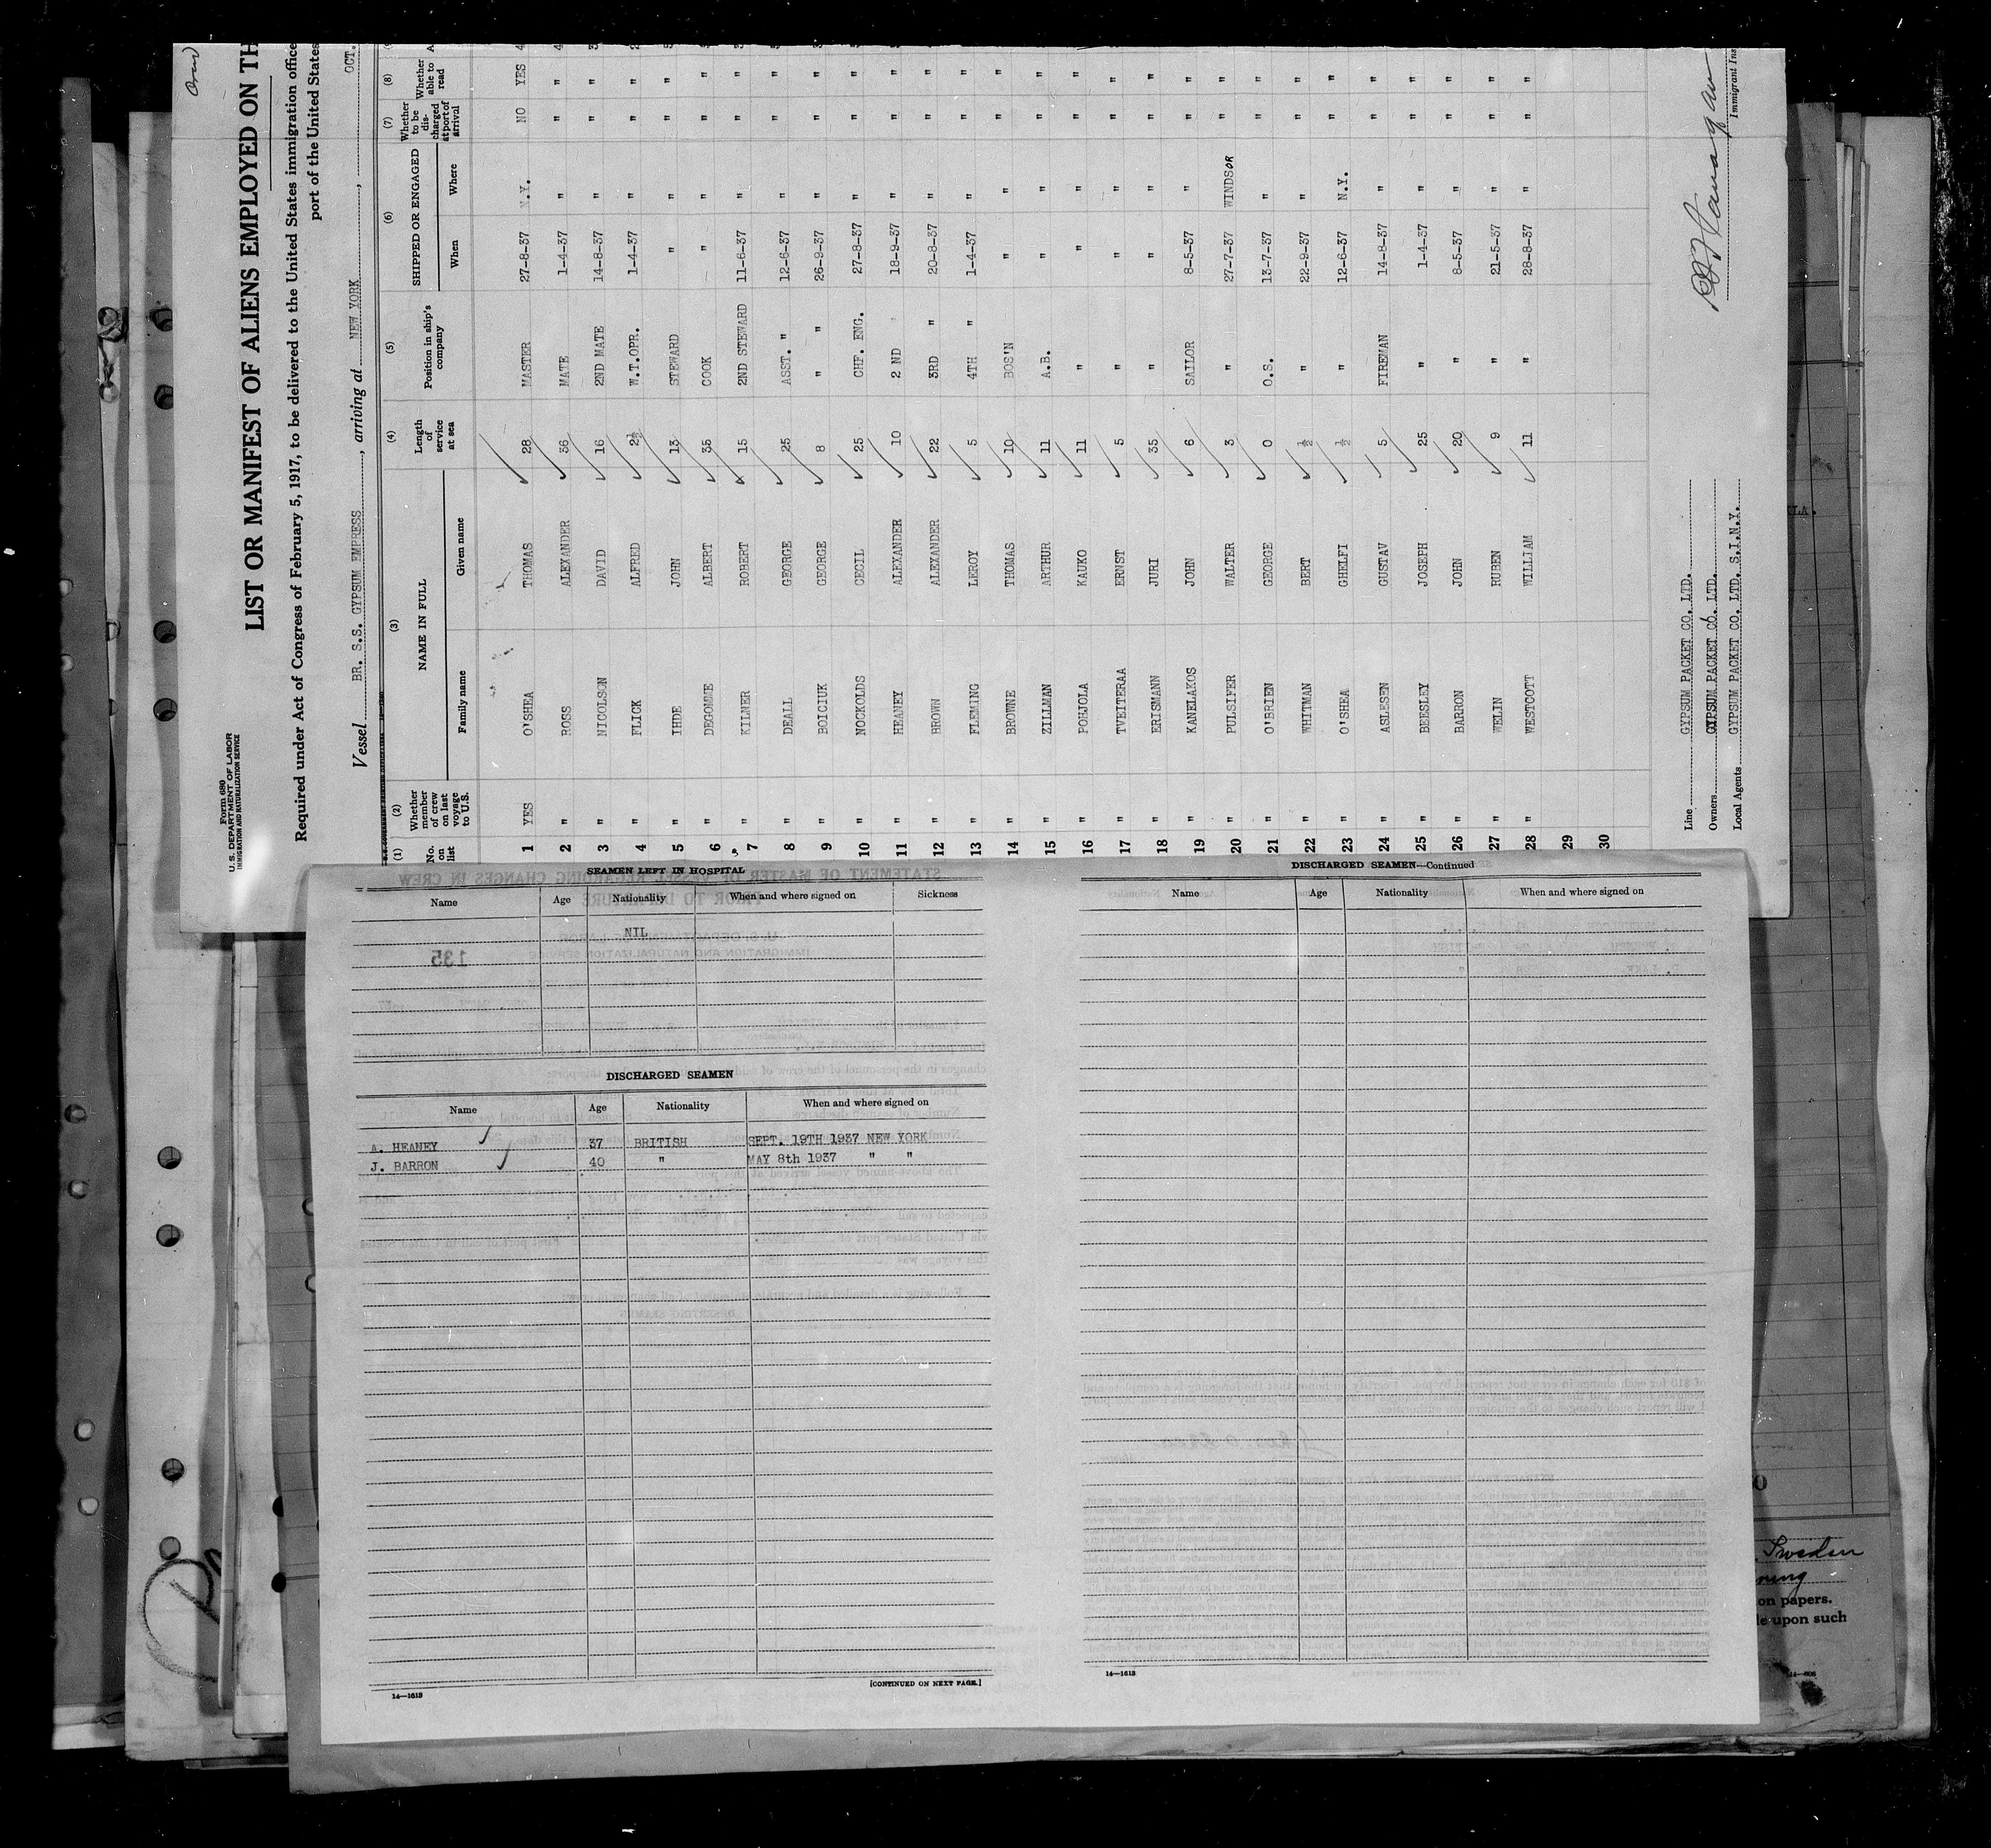 Form 680
U. S. DEPARTMENT OF LABOR
IMMIGRATION AND NATURALIZATION SERVICE
LIST OR MANIFEST OF ALIENS EMPLOYED ON TH
Required under Act of Congress of February 5, 1917, to be delivered to the United States immigration office
port of the United States
Vessel BR. S.S. GYPSUM EMPRESS, arriving at NEW YORK, OCT.
(1) (2) (3) (4) (5) (6) (7) (8)
No. on list Whether member of crew on last voyage to U.S. NAME IN FULL Family name Given name Length of service at sea Position in ship's company SHIPPED OR ENGAGED When Where Whether to be discharged at port of arrival Whether able to read
1 YES O'SHEA THOMAS 28 MASTER 27-8-37 N.Y. NO YES
2 " ROSS ALEXANDER 36 MATE 1-4-37 " " "
3 " NICOLSON DAVID 16 2ND MATE 14-8-37 " " "
4 " FLICK ALFRED 2½ W.T.OPR. 1-4-37 " " "
5 " IHDE JOHN 13 STEWARD " " " "
6 " DEGOMME ALBERT 35 COOK " " " "
7 " KILNER ROBERT 15 2ND STEWARD 11-6-37 " " "
8 " DEALL GEORGE 25 ASST. " 12-6-37 " " "
9 " BOICIUK GEORGE 8 " " 26-9-37 " " "
10 " NOCKOLDS CECIL 25 CHF. ENG. 27-8-37 " " "
11 " HEANEY ALEXANDER 10 2 ND " 18-9-37 " " "
12 " BROWN ALEXANDER 22 3RD " 20-8-37 " " "
13 " FLEMING LEROY 5 4TH " 1-4-37 " " "
14 " BROWNE THOMAS 10 BOS'N " " " "
15 " ZILLMAN ARTHUR 11 A.B. " " " "
16 " POHJOLA KAUKO 11 " " " " "
17 " TVEITERAA ERNST 5 " " " " "
18 " ERISMANN JURI 35 " " " " "
19 " KANELAKOS JOHN 6 SAILOR 8-5-37 " " "
20 " PULSIFER WALTER 3 " 27-7-37 WINDSOR " "
21 " O'BRIEN GEORGE 0 O.S. 13-7-37 " " "
22 " WHITMAN BERT ½ " 22-9-37 " " "
23 " O'SHEA GHELFI ½ " 12-6-37 N.Y. " "
24 " ASLESEN GUSTAV 5 FIREMAN 14-8-37 " " "
25 " BEESLEY JOSEPH 25 " 1-4-37 " " "
26 " BARRON JOHN 20 " 8-5-37 " " "
27 " WELIN RUBEN 9 " 21-5-37 " " "
28 " WESTCOTT WILLIAM 11 " 28-8-37 " " "
29
30
Line GYPSUM PACKET CO. LTD.
Owners GYPSUM PACKET CO. LTD.
Local Agents GYPSUM PACKET CO. LTD. S.I.N.Y.
Immigrant Ins
SEAMEN LEFT IN HOSPITAL
Name Age Nationality When and where signed on Sickness
NIL
135
DISCHARGED SEAMEN
Name Age Nationality When and where signed on
A. HEANEY 37 BRITISH SEPT. 19TH 1937 NEW YORK
J. BARRON 40 " MAY 8th 1937 " "
14—1613
[CONTINUED ON NEXT PAGE.]
DISCHARGED SEAMEN—Continued
Name Age Nationality When and where signed on
14—1613
Sweden
on papers.
upon such